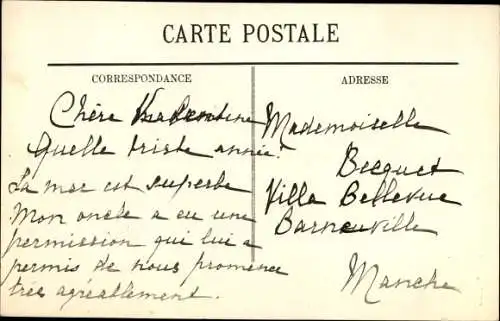 CARTE POSTALE
CORRESPONDANCE
Chère Valentine
Quelle triste année!
La mer est superbe
Mon oncle a eu une
permission qui lui a
permis de nous promener
très agréablement.
ADRESSE
Mademoiselle
Becquet
Villa Bellevue
Barneville
Manche